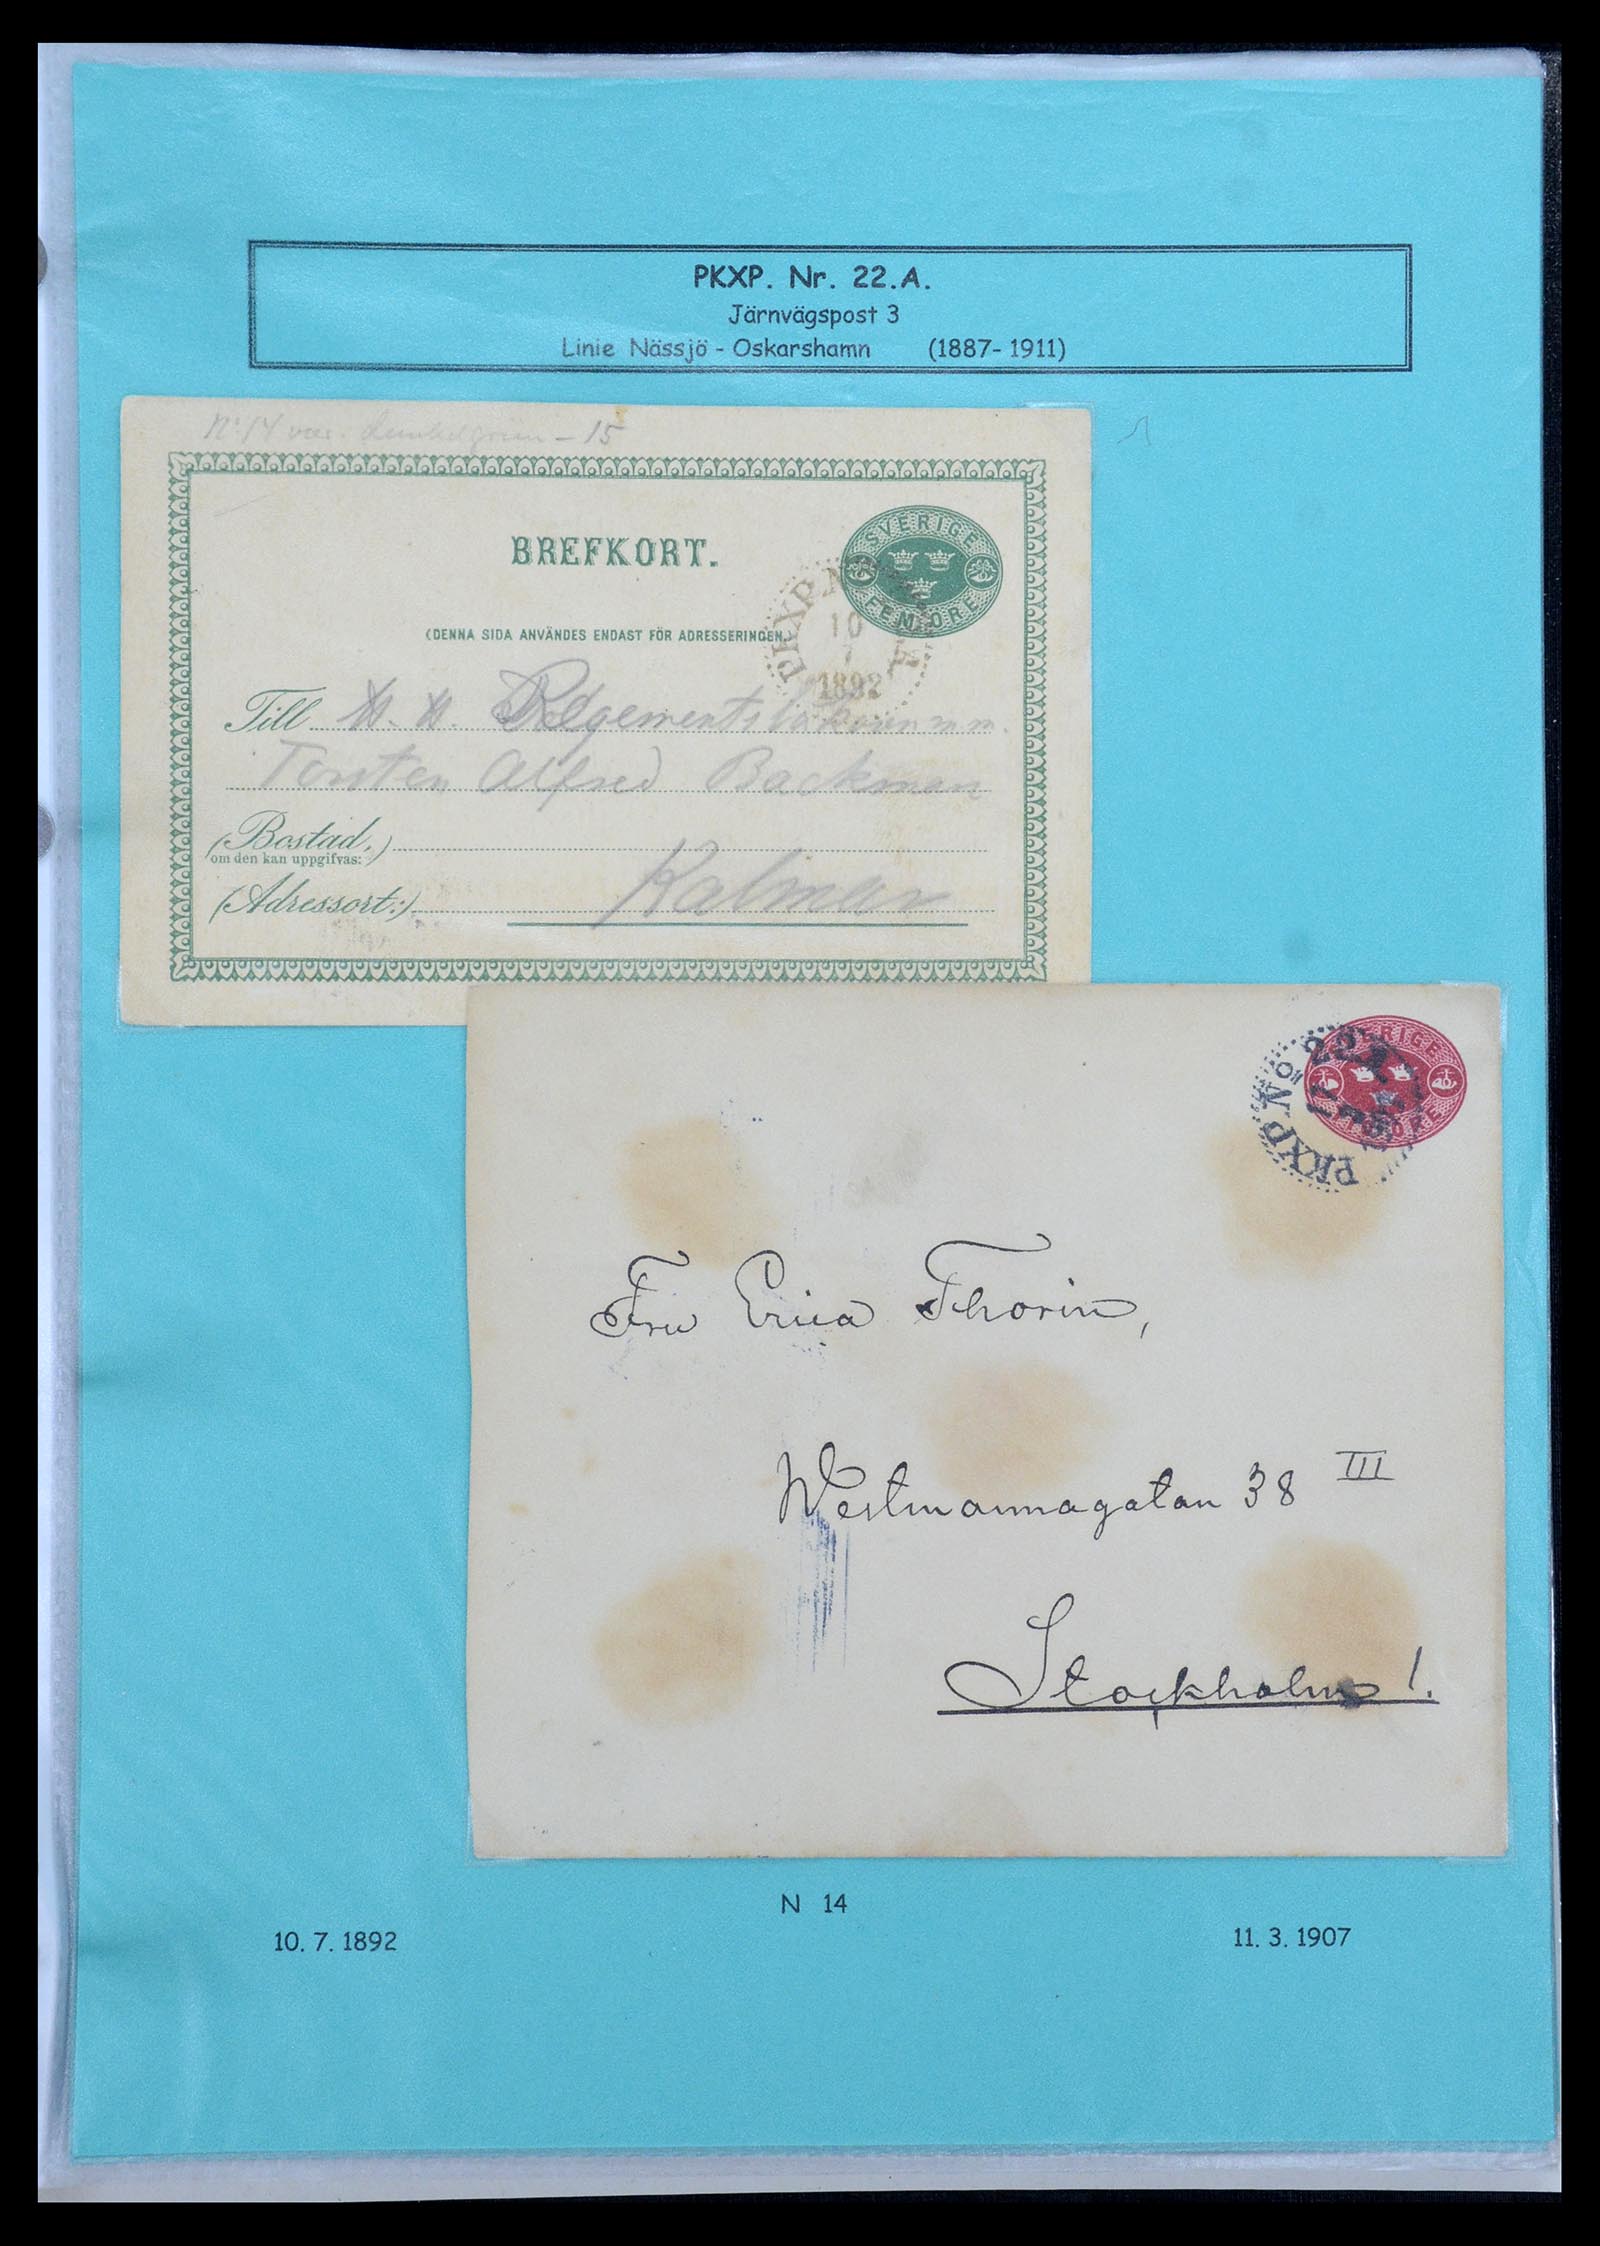 PKXP. Nr. 22.A.
Järnvägspost 3
Linie Nässjö - Oskarshamn (1887- 1911)
No 14 - 15
SVERIGE
FEM ÖRE
BREFKORT.
(DENNA SIDA ANVÄNDES ENDAST FÖR ADRESSERINGEN.)
PKXP. N
10
7
1892
A
Till
Torsten Alfred Backman
(Bostad,
om den kan uppgifvas:)
(Adressort:) Kalmar
SVERIGE
TIO ÖRE
PKXP No 22
Fru Erica Thorin,
Westmannagatan 38 III
Stockholm 1.
N 14
10. 7. 1892
11. 3. 1907